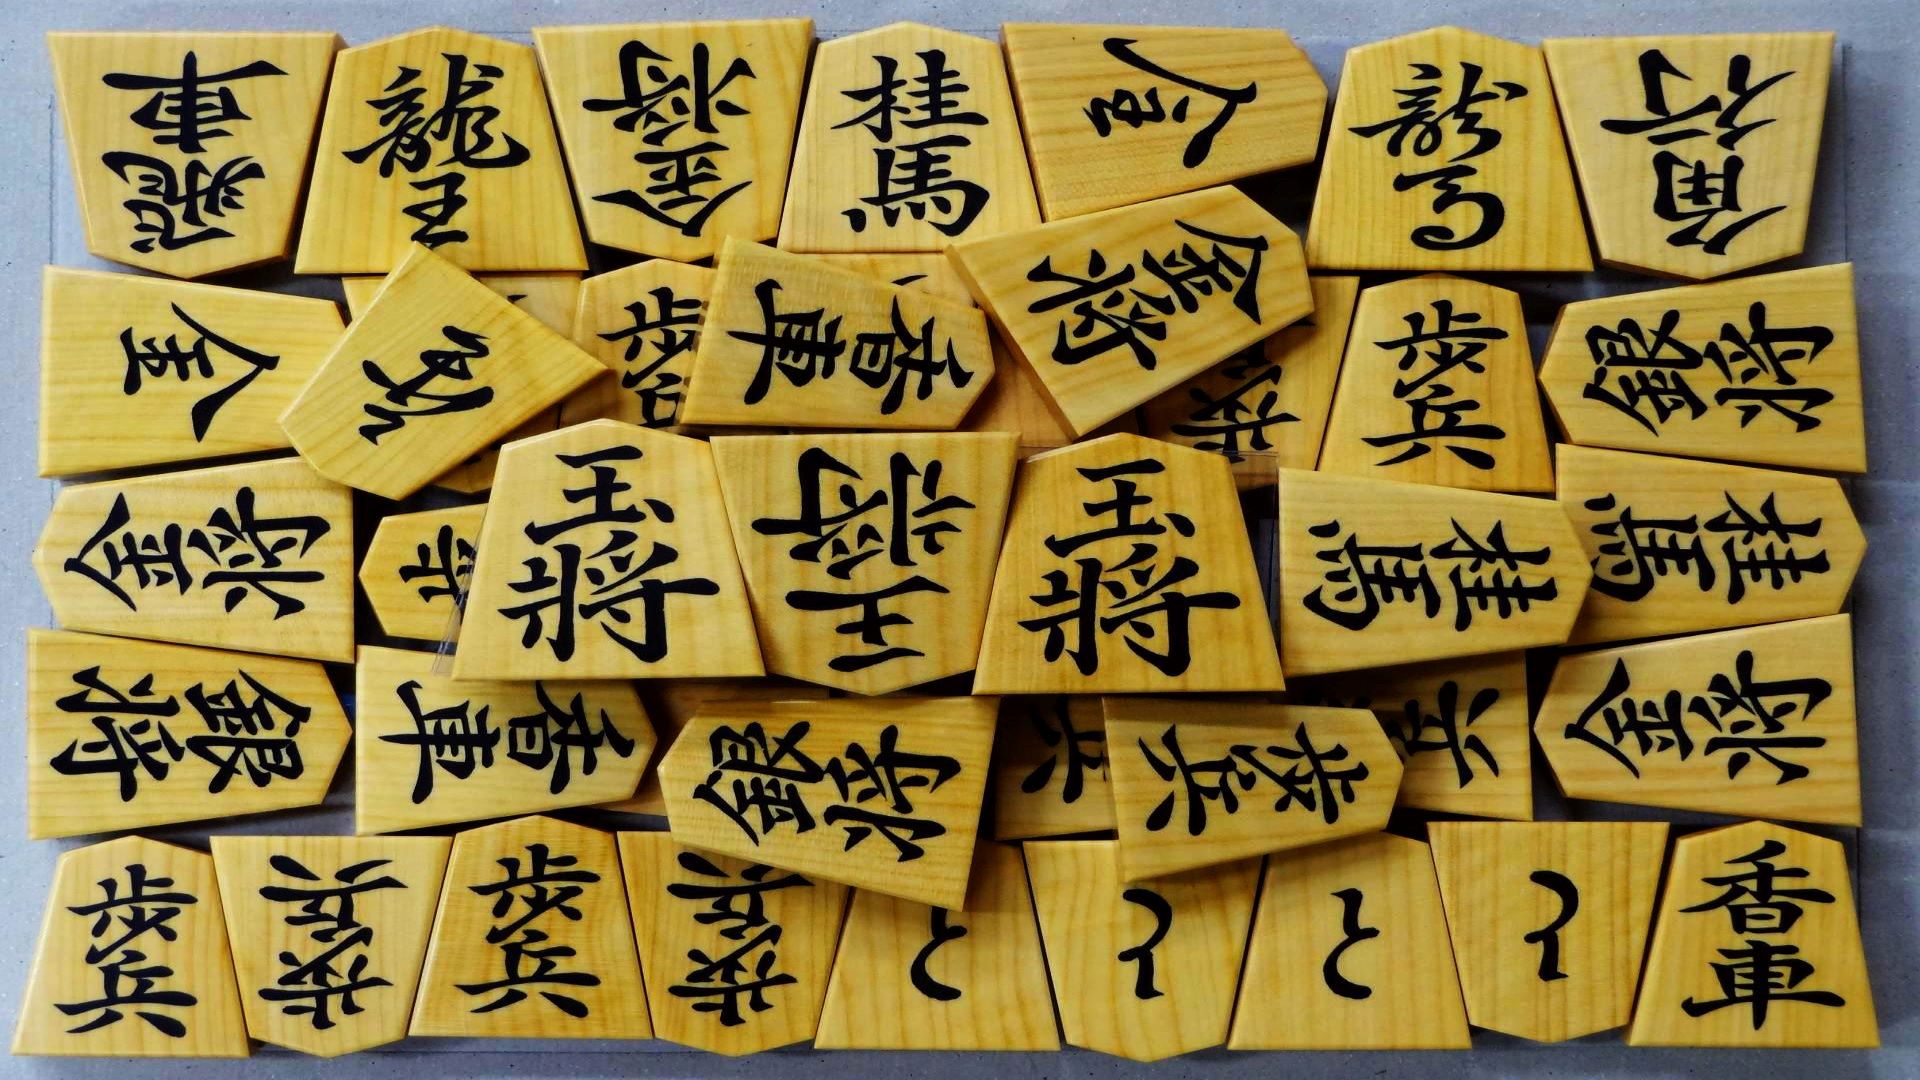 飛車
龍王
金将
桂馬
龍馬
角行
香車
歩兵
銀将
金将
王将
王将
王将
桂馬
桂馬
銀将
香車
銀将
歩兵
金将
歩兵
歩兵
歩兵
歩兵
と
と
と
と
香車